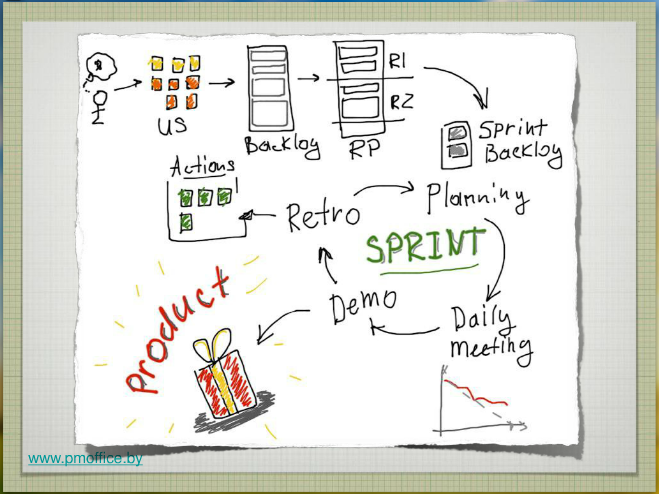 US
Backlog
RP
R1
R2
Sprint
Backlog
Actions
Retro
Planning
SPRINT
Demo
Daily
meeting
product
www.pmoffice.by